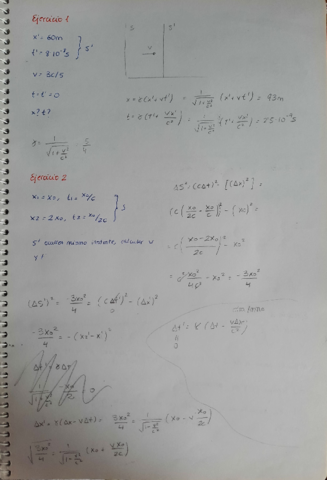 Ejercicio 1
x' = 60m
t' = 8·10⁻⁸s } S'
v = 3c/5
t = t' = 0
x? t?
S S'
v
x = γ(x'+vt') = 1/√(1-v²/c²) (x'+vt') = 93m
t = γ(t'+vx'/c²) = 1/√(1-v²/c²) (t'+vx'/c²) = 2'5·10⁻⁷s
γ = 1/√(1-v²/c²) = 5/4
Ejercicio 2
x₁ = x₀, t₁ = x₀/c
x₂ = 2x₀, t₂ = x₀/2c } S
S' mismo instante calcular v
ΔS² = (cΔt)² - [(Δx)²] =
(c(x₀/2c - x₀/c))² - (x₀)² =
= c²(x₀-2x₀/2c)² - x₀²
= x₀²/4 - x₀² = -3x₀²/4
(ΔS')² = -3x₀²/4 = (cΔt')² - (Δx')²
0
-3x₀²/4 = -(x₂'-x₁')²
Δt' = γ(Δt - vΔx/c²)
0
Δx' = γ(Δx - vΔt) = 3x₀²/4 = 1/√(1-v²/c²) (x₀ - v x₀/2c)
√(3x₀²/4) = 1/√(1-v²/c²) (x₀ + vx₀/2c)